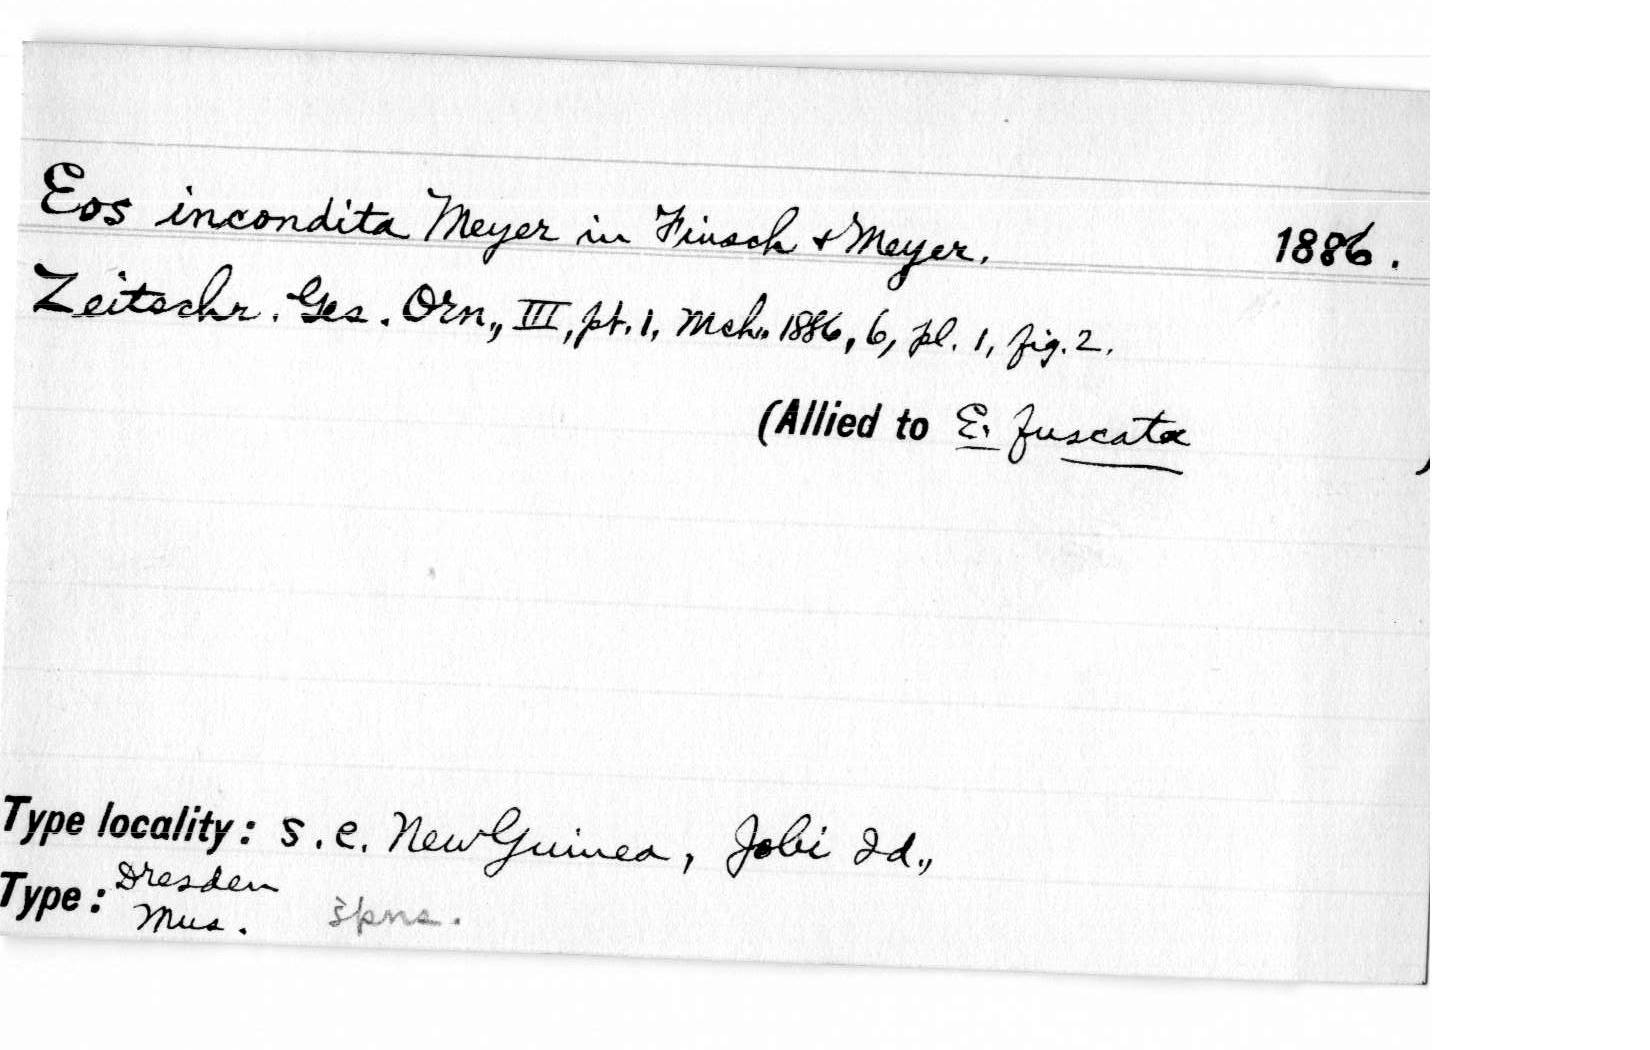 Eos incondita Meyer in Finsch & Meyer. 1886.
Zeitschr. Ges. Orn., III, pt. 1, Mch. 1886, 6, pl. 1, fig. 2.
(Allied to E. fuscata )
Type locality: S. e. New Guinea, Jobi Id.,
Type: Dresden
Mus. 3 spns.